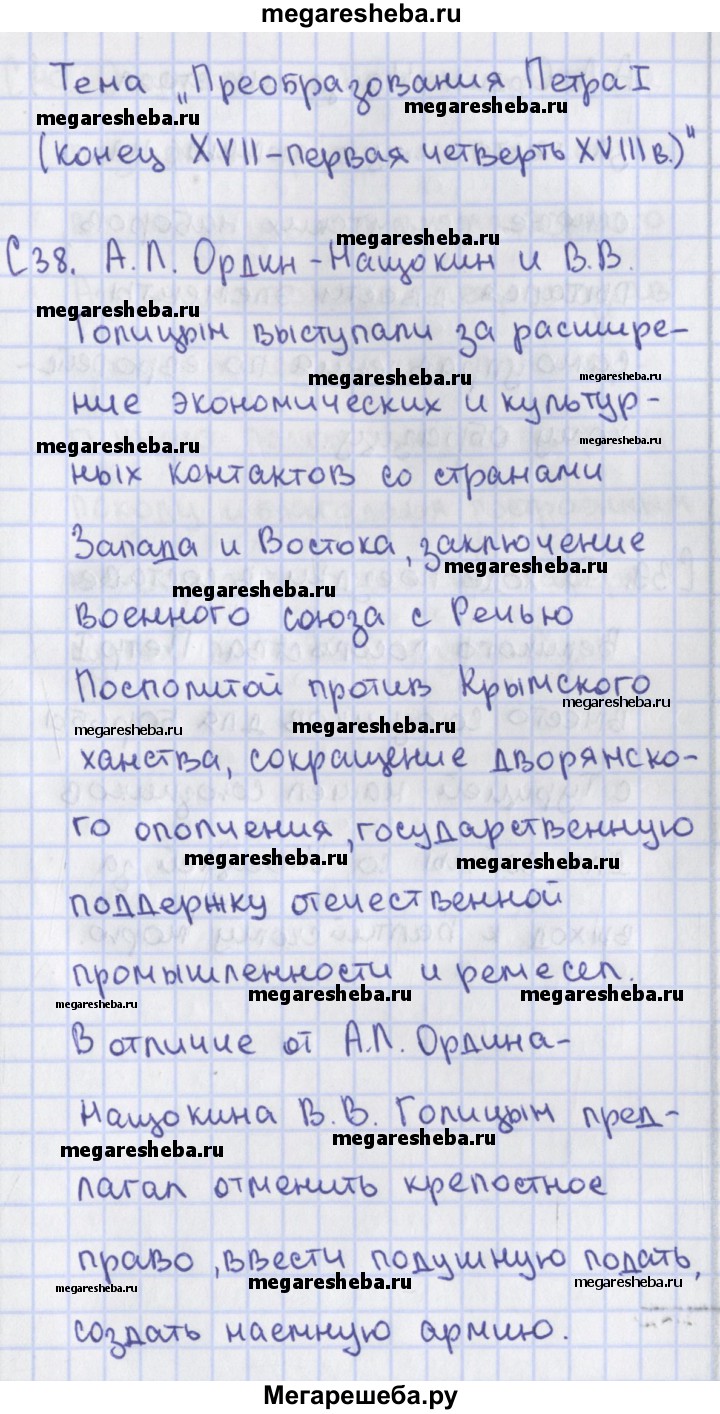 megaresheba.ru
Тема „Преобразования Петра I
megaresheba.ru
megaresheba.ru
(конец XVII-первая четверть XVIII в.)"
megaresheba.ru
С38. А.Л. Ордин-Нащокин и В.В.
megaresheba.ru
Голицын выступали за расшире-
megaresheba.ru
megaresheba.ru
ние экономических и культур-
megaresheba.ru
megaresheba.ru
ных контактов со странами
Запада и Востока, заключение
megaresheba.ru
megaresheba.ru
военного союза с Речью
Посполитой против Крымского
megaresheba.ru
megaresheba.ru
megaresheba.ru
ханства, сокращение дворянско-
го ополчения, государственную
megaresheba.ru
megaresheba.ru
поддержку отечественной
промышленности и ремесел.
megaresheba.ru
megaresheba.ru
megaresheba.ru
В отличие от А.Л. Ордина-
Нащокина В.В. Голицын пред-
megaresheba.ru
megaresheba.ru
лагал отменить крепостное
право, ввести подушную подать,
megaresheba.ru
megaresheba.ru
megaresheba.ru
создать наемную армию.
Мегарешеба.ру